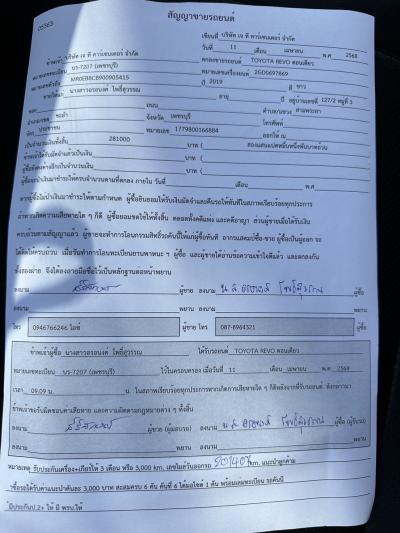 05363
สัญญาขายรถยนต์
เขียนที่ บริษัท เจ ที คาร์เซนเตอร์ จำกัด
วันที่ 11 เดือน เมษายน พ.ศ 2568
ข้าพเจ้า บริษัท เจ ที คาร์เซนเตอร์ จำกัด ตกลงขายรถยนต์ TOYOTA REVO ตอนเดียว
หมายเลขทะเบียน บร-7207 (เพชรบุรี) หมายเลขเครื่องยนต์ 2GD0697869
หมายเลขตัวถัง MR0EB8CB900905415 ปี 2019 สี ขาว
นางสาวอรอนงค์ โพธิ์สุวรรณ อายุ ปี อยู่บ้านเลขที่ 127/2 หมู่ที่ 3
ถนน ตำบล/แขวง สามพระยา
อำเภอ/เขต ชะอำ จังหวัด เพชรบุรี โทรศัพท์
บัตร ประชาชน หมายเลข 1779800166884 ออกให้ ณ
เป็นจำนวนเงินทั้งสิ้น 281000 บาท ( สองแสนแปดหมื่นหนึ่งพันบาทถ้วน
ข้าพเจ้าได้รับมัดจำแล้วเป็นเงิน บาท (
ผู้ซื้อยังค้างชำระอีกเป็นจำนวนเงิน บาท (
ผู้ซื้อจะนำเงินมาชำระให้ครบจำนวนตามที่ตกลง ภายใน วันที่ เดือน พ.ศ
หากผู้ซื้อไม่นำเงินมาชำระให้ตามกำหนด ผู้ซื้อยินยอมให้ริบเงินมัดจำและคืนรถให้ทันทีในสภาพเรียบร้อยทุกประการ
ถ้าหากเกิดความเสียหายใด ๆ ก็ดี ผู้ซื้อยอมชดใช้ให้ทั้งสิ้น ตลอดทั้งคดีแพ่ง และคดีอาญา ส่วนผู้ขายเมื่อได้รับเงิน
ครบถ้วนตามสัญญาแล้ว ผู้ขายจะทำการโอนกรรมสิทธิ์รถคันนี้ให้แก่ผู้ซื้อทันที
ทั้งสองฝ่าย จึงได้ลงลายมือชื่อไว้เป็นหลักฐานต่อหน้าพยาน
ลงนาม ผู้ขาย ลงนาม น.ส.อรอนงค์ โพธิ์สุวรรณ ผู้ซื้อ
ลงนาม พยาน ลงนาม พยาน
โทร 0946766246 ไอซ์ ผู้ขาย โทร 087-8964321 ผู้ซื้อ
ข้าพเจ้าผู้ซื้อ นางสาวอรอนงค์ โพธิ์สุวรรณ ได้รับรถยนต์ TOYOTA REVO ตอนเดียว
หมายเลขทะเบียน บร-7207 (เพชรบุรี) ไว้ในครอบครอง เมื่อวันที่ 11 เดือน เมษายน พ.ศ 2568
เวลา 09.09 น. ในสภาพเรียบร้อยทุกประการหากเกิดการเสียหายใด ๆ ก็ดีหลังจากที่รับรถยนต์ ดังกล่าวมา
ข้าพเจ้าขอรับผิดชอบค่าเสียหาย และความผิดตามกฎหมายต่าง ๆ ทั้งสิ้น
ลงนาม ผู้ขาย (ผู้มอบรถ) ลงนาม น.ส.อรอนงค์ โพธิ์สุวรรณ ผู้ซื้อ (ผู้รับรถ)
ลงนาม พยาน ลงนาม พยาน
หมายเหตุ รับประกันเครื่อง+เกียร์ให้ 3 เดือน หรือ 3,000 km. เลขไมล์วันออกรถ 201407 km. แนะนำลูกค้ามา
ซื้อรถได้รับค่าแนะนำคันละ 3,000 บาท สะสมครบ 6 คัน คันที่ 6 ได้มอไซต์ 1 คัน พร้อมเล่มทะเบียน รถคันนี้
มีประกันป.2+ ให้ มี พรบ.ให้